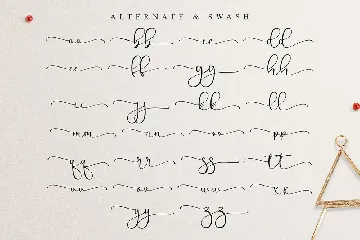 ALTERNATE & SWASH
aa bb cc dd
ee ff gg hh
ii jj kk ll
mm nn oo pp
qq rr ss tt
uu vv ww xx
yy zz